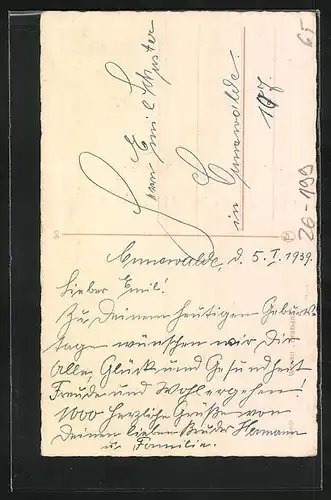 Herrn Emil Schuster
in Cunewalde.
107.
65
26-199
Cunewalde, d. 5.I.1939.
Lieber Emil!
Zu Deinem heutigen Geburts-
tage wünschen wir Dir
Alle, Glück und Gesundheit
Freude und Wohlergehen!
1000 herzliche Grüße von
Deinem lieben Bruder Hermann
u. Familie.